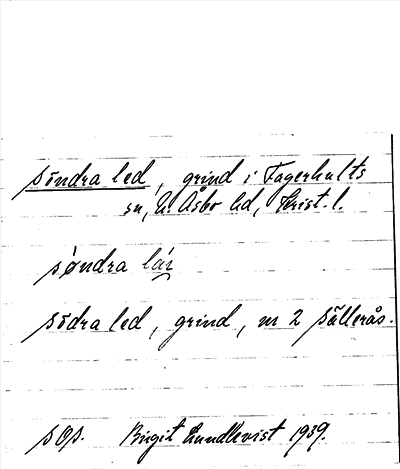 söndra led, grind i Fagerhults
sn, N. Åsbo hd, Krist. l.
söndra
södra led, grind, nr 2 Sälleås.
sOp. Birgit Lundkvist 1939.